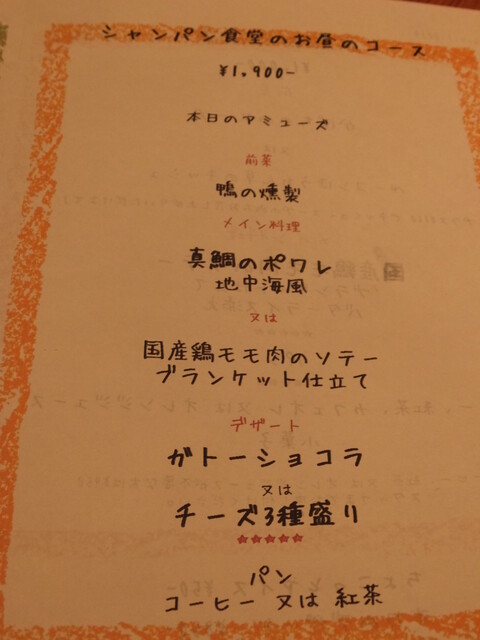 シャンパン食堂のお昼のコース
¥1,900-
本日のアミューズ
前菜
鴨の燻製
メイン料理
真鯛のポワレ
地中海風
又は
国産鶏モモ肉のソテー
ブランケット仕立て
デザート
ガトーショコラ
又は
チーズ3種盛り
★★★★★
パン
コーヒー 又は 紅茶